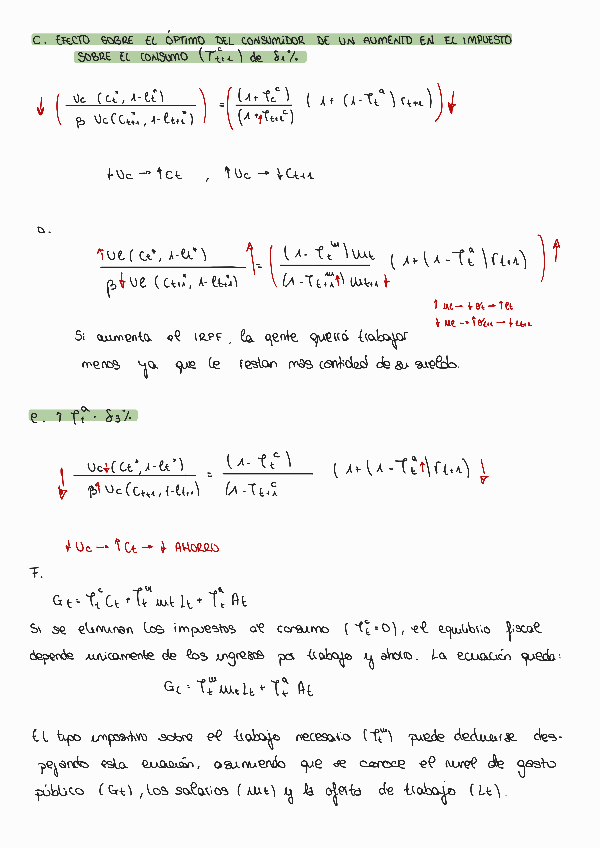 C. EFECTO SOBRE EL ÓPTIMO DEL CONSUMIDOR DE UN AUMENTO EN EL IMPUESTO
SOBRE EL CONSUMO (τᶜt+1) de δ1%
↓ ( Uc (Ct*, 1-lt*) / β Uc (Ct+1*, 1-lt+1*) ) = ( (1+τtᶜ) / (1+↑τt+1ᶜ) (1+(1-τtᵃ) rt+1) ) ↓
↓Uc → ↑Ct , ↑Uc → ↓Ct+1
D.
↑Ul (Ct*, 1-lt*) / β↓Ul (Ct+1*, 1-lt+1*) ↑ = ( (1-τtʷ) wt / (1-τt+1ʷ↑) wt+1↓ (1+(1-τtᵃ) rt+1) ) ↑
Si aumenta el IRPF, la gente querrá trabajar
menos ya que le restan más cantidad de su sueldo.
e. ↑ τtᵃ. δ3%
↓ Uc↓(Ct*, 1-lt*) / β↑Uc (Ct+1, 1-lt+1) = (1-τtᶜ) / (1-τt+1ᶜ (1+(1-τtᵃ↑) rt+1) ↓
↓Uc → ↑Ct → ↓ AHORRO
F.
Gt = τtᶜ Ct + τtʷ wt Lt + τtᵃ At
Si se eliminan los impuestos al consumo (τtᶜ=0), el equilibrio fiscal
depende unicamente de los ingresos por trabajo y ahorro. La ecuación queda:
Gt = τtʷ wt Lt + τtᵃ At
El tipo impositivo sobre el trabajo necesario (τtʷ) puede deducirse des-
pejando esta ecuación, asumiendo que se conoce el nivel de gasto
público (Gt), los salarios (wt) y la oferta de trabajo (Lt).